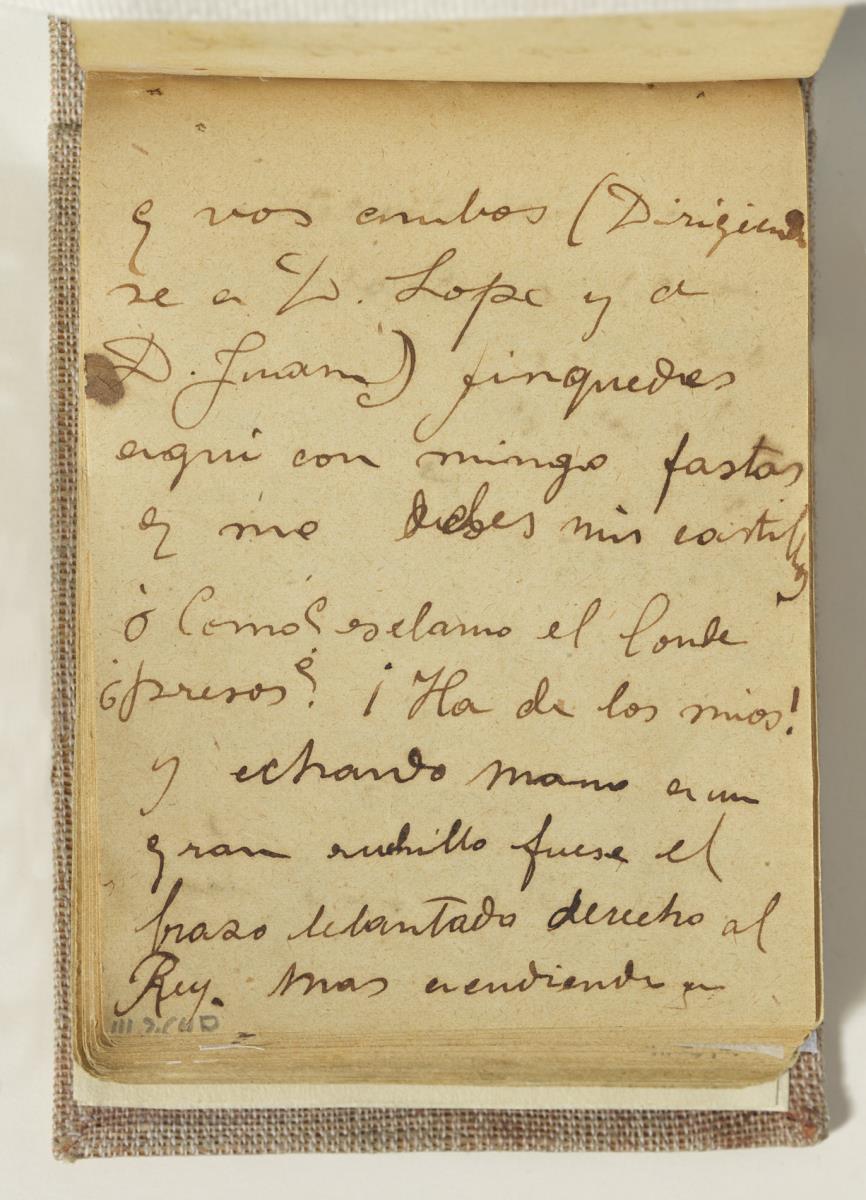 q vos ambos (Dirigiendo
se a D. Lope y a
D. Juan) finquedes
aqui con mingo fastas
q me dedes mis castillos
ó Como? esclamo el Conde
¿presos? ¡Ha de los mios!
y echando mano a un
gran cuchillo fuese el
brazo lebantado derecho al
Rey. Mas acendiendo